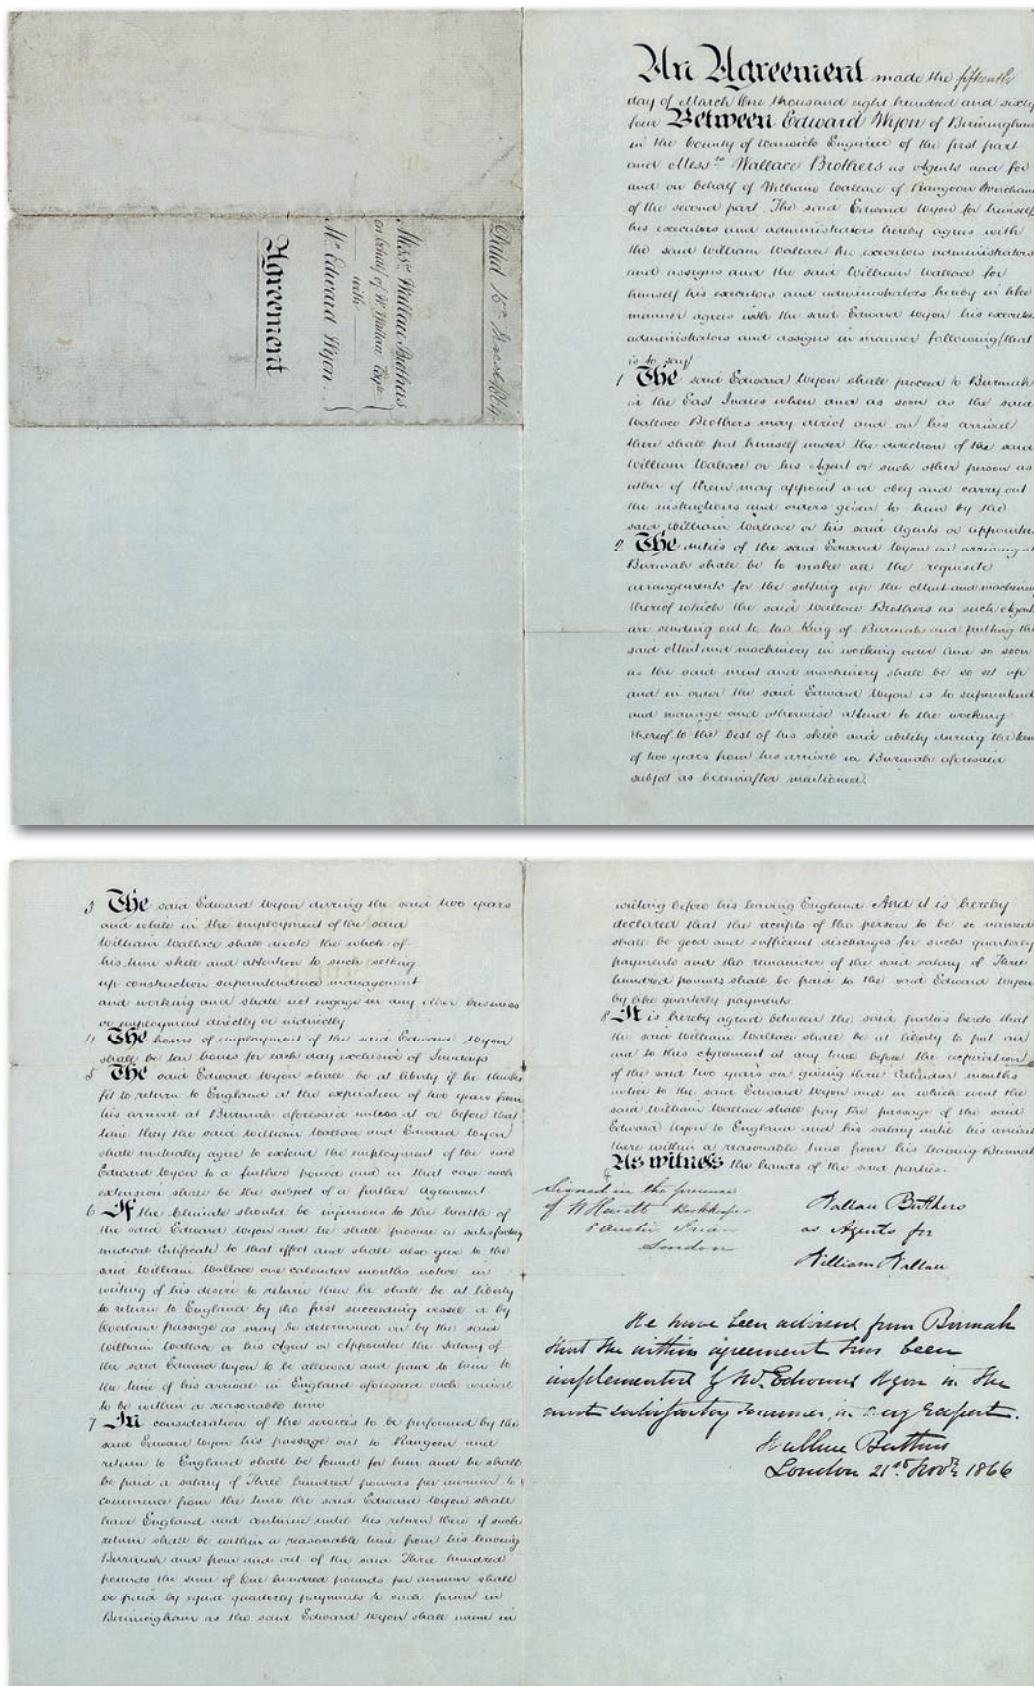 Dated 15th March 1864
Messrs Wallace Brothers
on behalf of W. Wallace Esqre
with
Mr Edward Wyon
Agreement
An Agreement made the fifteenth
day of March One thousand eight hundred and sixty
four Between Edward Wyon of Birmingham
in the County of Warwick Engineer of the first part
and Messrs Wallace Brothers as Agents and for
and on behalf of William Wallace of Rangoon Merchant
of the second part. The said Edward Wyon for himself
his executors and administrators hereby agrees with
the said William Wallace his executors administrators
and assigns and the said William Wallace for
himself his executors and administrators hereby in like
manner agrees with the said Edward Wyon his executors
administrators and assigns in manner following (that
is to say)
1 The said Edward Wyon shall proceed to Burmah
in the East Indies when and as soon as the said
Wallace Brothers may direct and on his arrival
there shall put himself under the direction of the said
William Wallace or his Agent or such other person as
either of them may appoint and obey and carry out
the instructions and orders given to him by the
said William Wallace or his said Agents or appointee
2 The duties of the said Edward Wyon on arriving at
Burmah shall be to make all the requisite
arrangements for the setting up the Mint and machinery
thereof which the said Wallace Brothers as such Agents
are sending out to the King of Burmah and putting the
said Mint and machinery in working order and so soon
as the said mint and machinery shall be so set up
and in order the said Edward Wyon is to superintend
and manage and otherwise attend to the working
thereof to the best of his skill and ability during the term
of two years from his arrival in Burmah aforesaid
subject as hereinafter mentioned.
3 The said Edward Wyon during the said two years
and while in the employment of the said
William Wallace shall devote the whole of
his time skill and attention to such setting
up construction superintendence management
and working and shall not engage in any other business
or employment directly or indirectly
4 The hours of employment of the said Edward Wyon
shall be ten hours for each day exclusive of Sundays
5 The said Edward Wyon shall be at liberty if he thinks
fit to return to England at the expiration of two years from
his arrival at Burmah aforesaid unless at or before that
time they the said William Wallace and Edward Wyon
shall mutually agree to extend the employment of the said
Edward Wyon to a further period and in that case such
extension shall be the subject of a further Agreement
6 If the Climate should be injurious to the health of
the said Edward Wyon and he shall procure a satisfactory
medical Certificate to that effect and shall also give to the
said William Wallace one calendar months notice in
writing of his desire to return then he shall be at liberty
to return to England by the first succeeding vessel or by
Overland passage as may be determined on by the said
William Wallace or his Agent or Appointee the Salary of
the said Edward Wyon to be allowed and paid to him to
the time of his arrival in England aforesaid such arrival
to be within a reasonable time
7 In consideration of the services to be performed by the
said Edward Wyon his passage out to Rangoon and
return to England shall be found for him and he shall
be paid a salary of Three hundred pounds per annum to
commence from the time the said Edward Wyon shall
leave England and continue until his return there if such
return shall be within a reasonable time from his leaving
Burmah and from and out of the said Three hundred
pounds the sum of One hundred pounds per annum shall
be paid by equal quarterly payments to such person in
Birmingham as the said Edward Wyon shall name in
writing before his leaving England And it is hereby
declared that the receipts of the person to be so named
shall be good and sufficient discharges for such quarterly
payments and the remainder of the said salary of Three
hundred pounds shall be paid to the said Edward Wyon
by like quarterly payments
8 It is hereby agreed between the said parties hereto that
the said William Wallace shall be at liberty to put an
end to this Agreement at any time before the expiration
of the said two years on giving three Calendar months
notice to the said Edward Wyon and in which event the
said William Wallace shall pay the passage of the said
Edward Wyon to England and his salary until his arrival
there within a reasonable time from his leaving Burmah
As witness the hands of the said parties.
Signed in the presence
of W Hewett Bookkeeper
Austin Friars
London
Wallace Brothers
as Agents for
William Wallace
We have been advised from Burmah
that the within agreement has been
implemented by Mr. Edward Wyon in the
most satisfactory manner, in every respect.
Wallace Brothers
London 21st Novr 1866